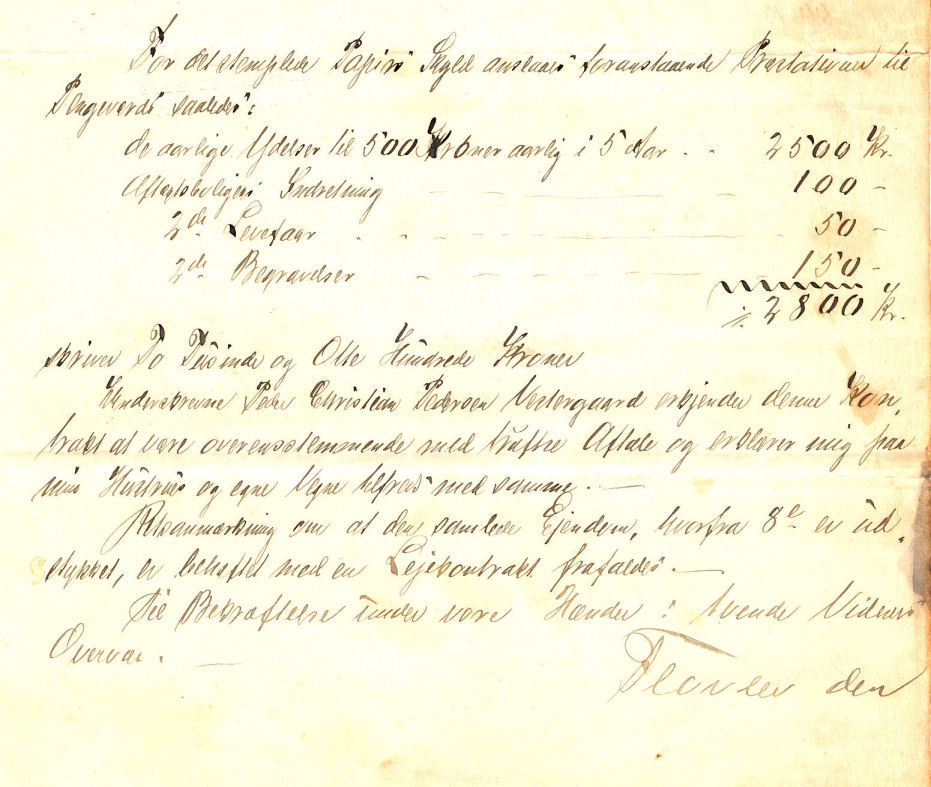 For det stemplede Papirs Skyld anslaaes foranstaaende Præstationer til
Pengeværdi saaledes:
de aarlige Ydelser til 500 Kroner aarlig i 5 Aar . . 2500 Kr.
Aftægtsboligens Indretning 100 -
2de Levefaar . . 50 -
2de Begravelser 150 -
2800 Kr.
skriver To Tusinde og Otte Hundrede Kroner
Underskrevne Peder Christian Pedersen Vestergaard erkjender denne Kon,
trakt at være overensstemmende med truffne Aftale og erklærer mig paa
min Hustrues og egne Vegne tilfreds med samme. —
Retsanmærkning om at den samlede Ejendom, hvorfra 8e er ud,
stykket, er behæftet med en Lejekontrakt frafaldes. —
Til Bekræftelse under vore Hænder i tvende Vidners
Overvær. —
den